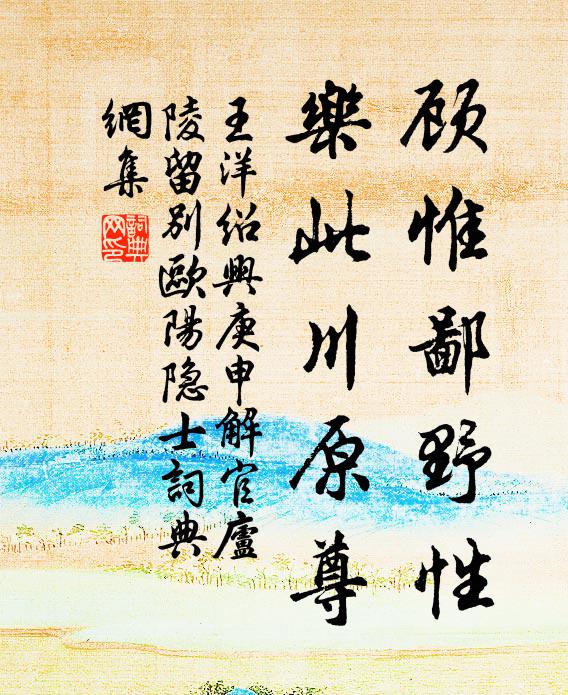 顾惟鄙野性
樂此川原尊
王洋绍興庚申解官廬
陵留别歐陽隐士詞典
網集
詞典
网印